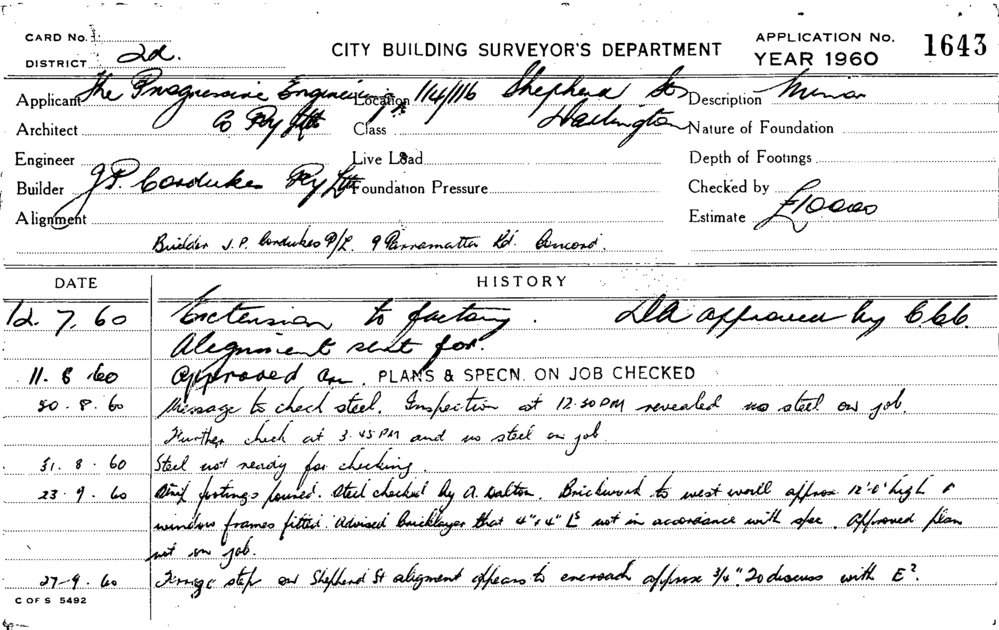 CARD No. 1.
DISTRICT 2d.
CITY BUILDING SURVEYOR'S DEPARTMENT
APPLICATION No. 1643
YEAR 1960
Applicant The Progressive Engineering Location 114/116 Shepherd St Description Minor
Architect Co Pty Ltd Class Darlington Nature of Foundation
Engineer Live Load Depth of Footings
Builder J.P. Cordukes Pty Ltd Foundation Pressure Checked by
Alignment Estimate £10000
Builder J.P. Cordukes P/L. 9 Parramatta Rd. Concord.
DATE HISTORY
12.7.60 Extension to factory. DA approved by C.C.C.
Alignment sent for.
11.8.60 Approved PLANS & SPECN. ON JOB CHECKED
30.8.60 Message to check steel. Inspection at 12.30PM revealed no steel on job.
Further check at 3.45PM and no steel on job
31.8.60 Steel not ready for checking.
23.9.60 Strip footings poured. Steel checked by A. Dalton. Brickwork to west wall approx 12'0" high &
window frames fitted. Advised bricklayer that 4"x4" Ls not in accordance with spec. Approved plan
not on job.
27-9.60 step on Shepherd St alignment appears to encroach approx 3/4". To discuss with
C OF S 5492